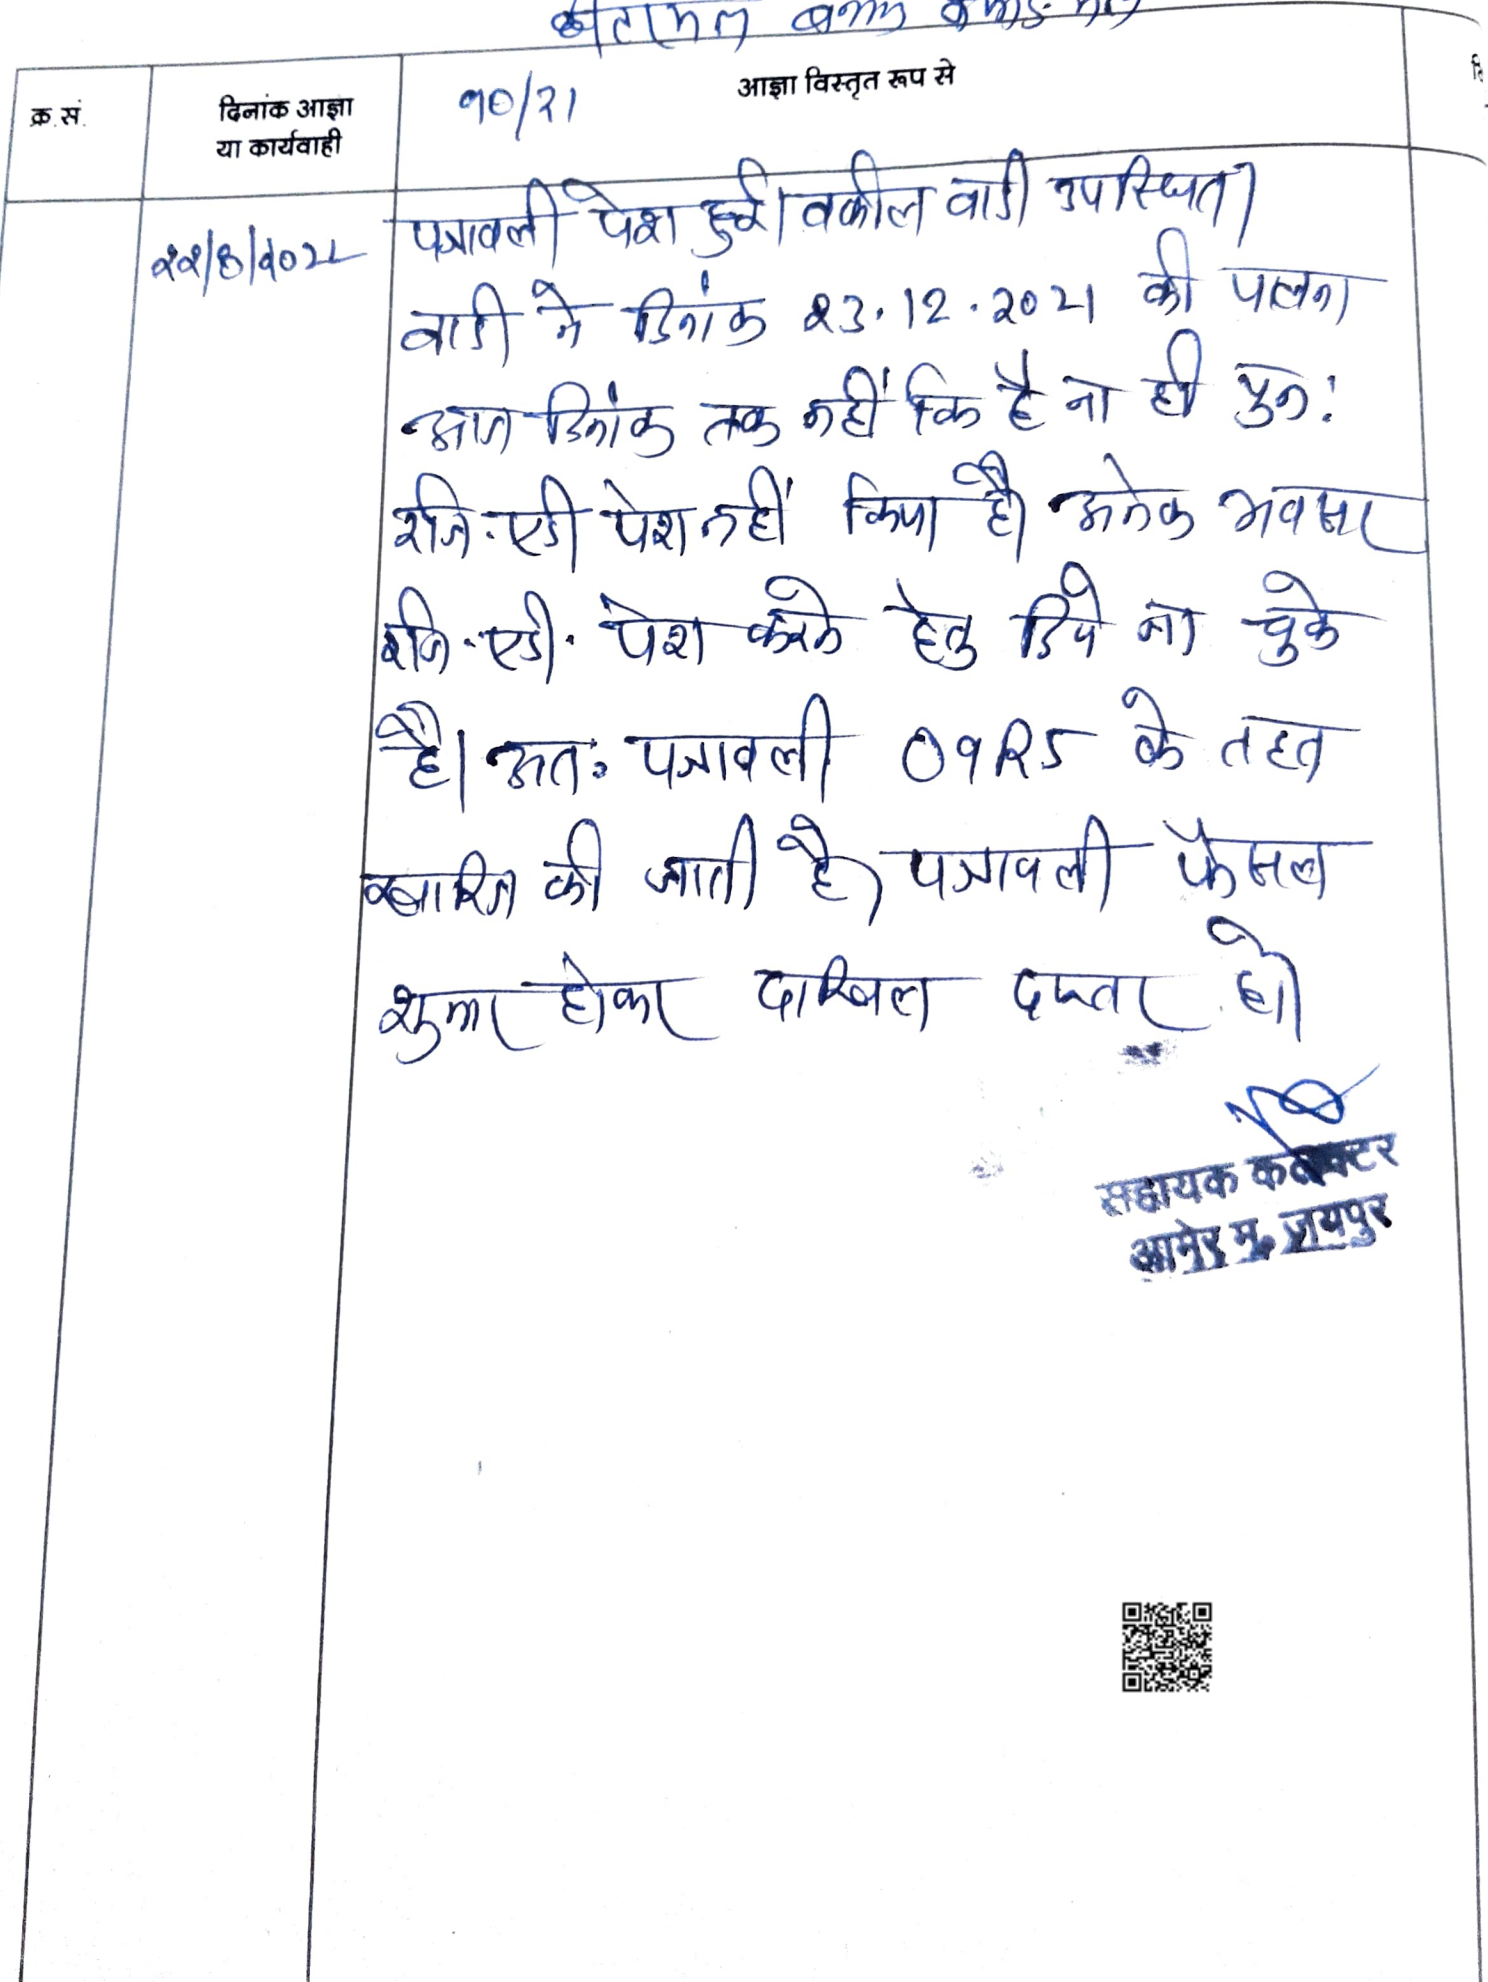 बनाम
क्र.सं. दिनांक आज्ञा या कार्यवाही 90/21 आज्ञा विस्तृत रूप से
पत्रावली पेश हुई। वकील वादी उपस्थित।
वादी ने दिनांक 23.12.2021 की पालना
आज दिनांक तक नहीं कि है ना ही पुन:
रजि.एडी पेश नहीं किया है। अनेक अवसर
रजि.एडी. पेश करने हेतु दिये जा चुके
है। अत: पत्रावली O9R5 के तहत
खारिज की जाती है। पत्रावली फैसल
शुमार होकर दाखिल दफ्तर हो।
सहायक कलेक्टर
आमेर मु. जयपुर